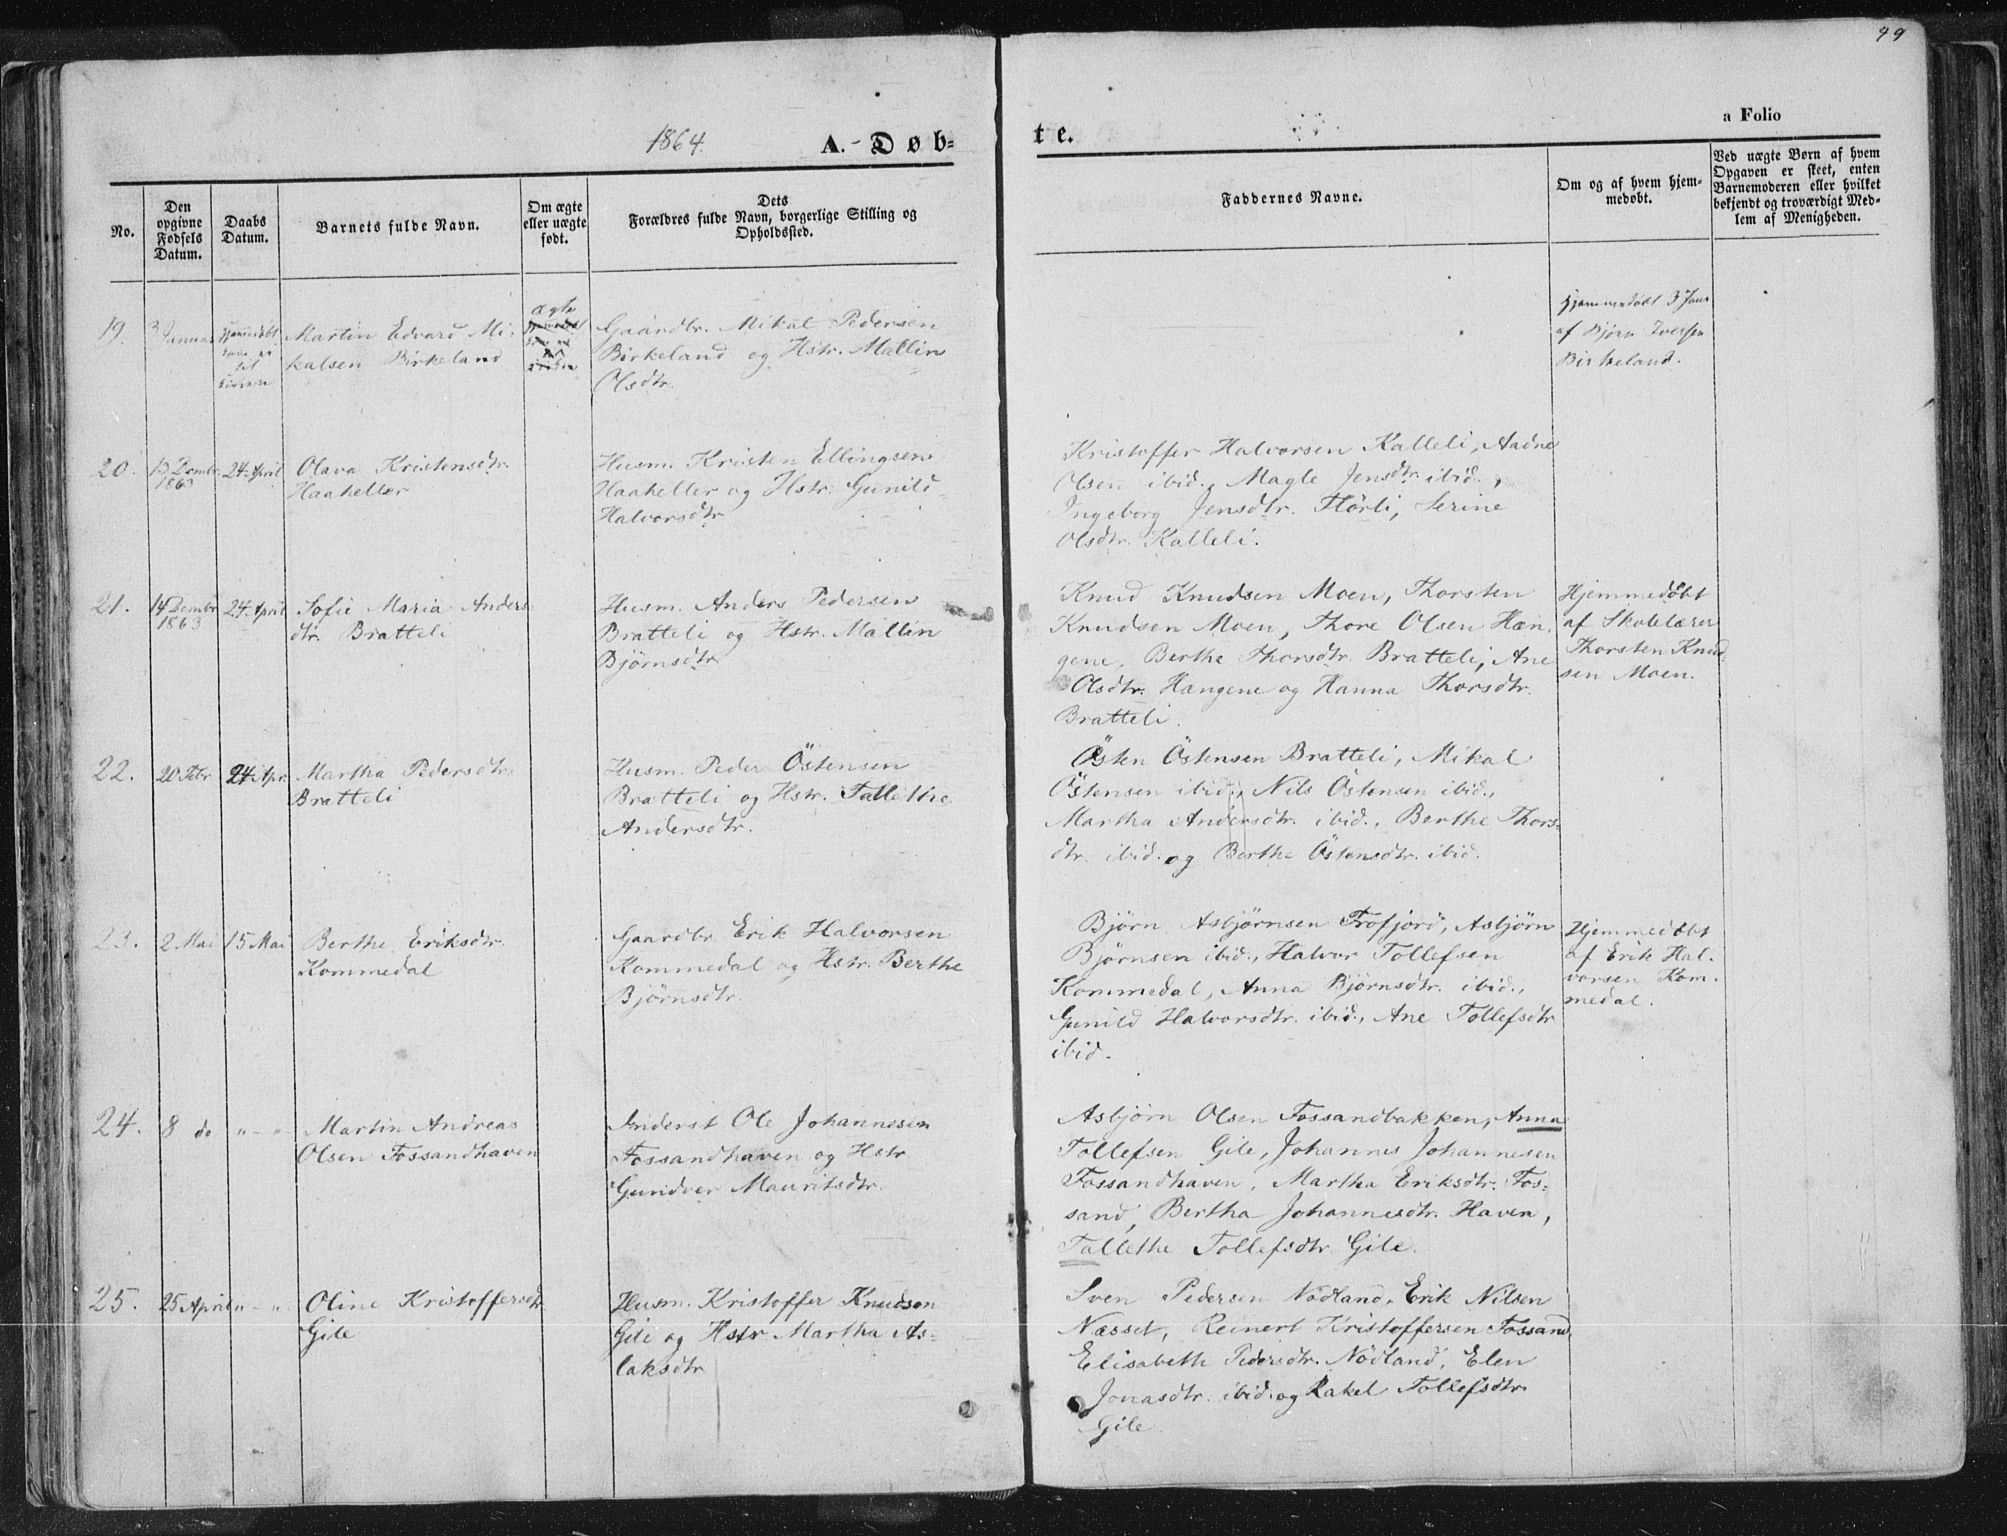 49
1864.
A. Døb-
te.
a Folio
No.
Den
opgivne
Fødsels
Datum.
Daabs
Datum.
Barnets fulde Navn.
Om ægte
eller uægte
født.
Dets
Forældres fulde Navn, borgerlige Stilling og
Opholdssted.
Faddernes Navne.
Om og af hvem hjem-
medøbt.
Ved uægte Børn af hvem
Opgaven er skeet, enten
Barnemoderen eller hvilket
bekjendt og troværdigt Med-
lem af Menigheden.
19.
3 Januar
Hjemmedøbt
Martin Edvard Mi-
kalsen Birkeland
ægte
Gaardbr. Mikal Pedersen
Birkeland og Hstr. Mallin
Olsdtr.
Hjemmedøbt 3 Janr
af Bjørn Iversen
Birkeland.
20.
13 Decmbr
1863
24 April
Olava Kristensdtr.
Haaheller
Husm. Kristen Ellingsen
Haaheller og Hstr. Gunild
Halvorsdtr
Kristoffer Halvorsen Kalleli, Aadne
Olsen ibid., Magle Jensdtr. ibid.,
Ingeborg Jensdtr. Hörli, Serine
Olsdtr. Kalleli.
21.
14 Decmbr
1863
24 April
Sofie Maria Anders-
dtr. Bratteli
Husm. Anders Pedersen
Bratteli og Hstr. Mallin
Björnsdtr
Knud Knudsen Moen, Thorsten
Knudsen Moen, Thore Olsen Hæn-
gene, Berthe Thorsdtr. Bratteli, Ane
Olsdtr. Hængene og Hanna Thorsdtr.
Bratteli.
Hjemmedøbt
af Skolelærer
Thorsten Knud-
sen Moen.
22.
20 Febr
24 Apr.
Martha Pedersdtr.
Bratteli
Husm. Peder Östensen
Bratteli og Hstr. Tallethe
Andersdtr.
Östen Östensen Bratteli, Mikal
Östensen ibid., Nils Östensen ibid.,
Martha Andersdtr. ibid., Berthe Thors-
dtr. ibid. og Berthe Östensdtr. ibid.
23.
2 Mai
15 Mai
Berthe Eriksdtr.
Kommedal
Gaardbr. Erik Halvorsen
Kommedal og Hstr. Berthe
Björnsdtr.
Björn Asbjörnsen Frafjord, Asbjörn
Björnsen ibid., Halvor Tollefsen
Kommedal, Anna Björnsdtr. ibid.,
Gunild Halvorsdtr. ibid., Ane Tollefsdtr
ibid.
Hjemmedøbt
af Erik Hal-
vorsen Kom-
medal.
24.
8 do
" - "
Martin Andreas
Olsen Fossandhaven
Inderst Ole Johannesen
Fossandhaven og Hstr
Gundver Mauritsdtr.
Asbjörn Olsen Fossandbakken, Anna
Tollefsen Gile, Johannes Johannesen
Fossandhaven, Martha Eriksdtr. Fos-
sand, Bertha Johannesdtr. Haven,
Tallethe Tollefsdtr. Gile.
25.
25 April
" - "
Oline Kristoffersdtr
Gile
Husm. Kristoffer Knudsen
Gile og Hstr. Martha As-
laksdtr
Sven Pedersen Nödland, Erik Nilsen
Næsset, Reinert Kristoffersen Fossand
Elisabeth Pedersdtr. Nödland, Elen
Jonasdtr. ibid. og Rakel Tollefsdtr
Gile.